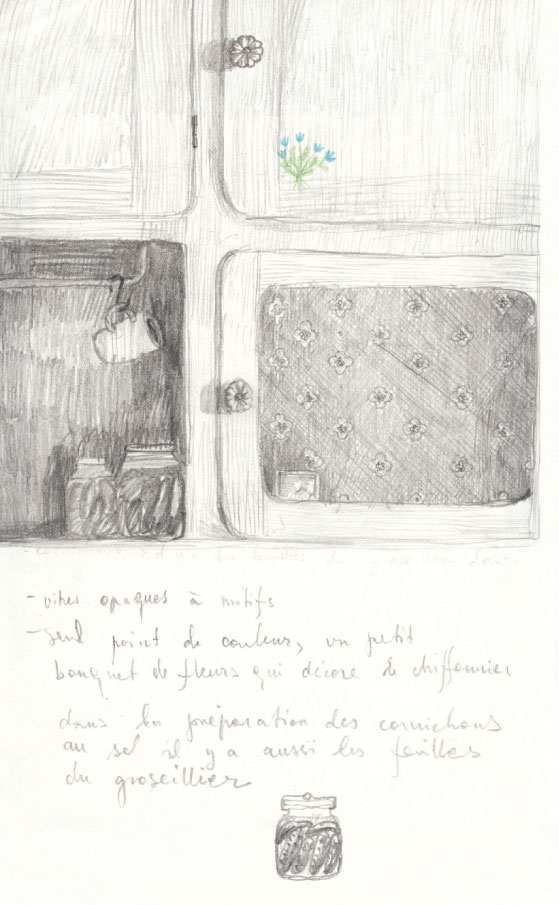 - vitres opaques à motifs
- seul point de couleur, un petit
bouquet de fleurs qui décore le chiffonnier
dans la préparation des cornichons
au sel il y a aussi les feuilles
du groseillier